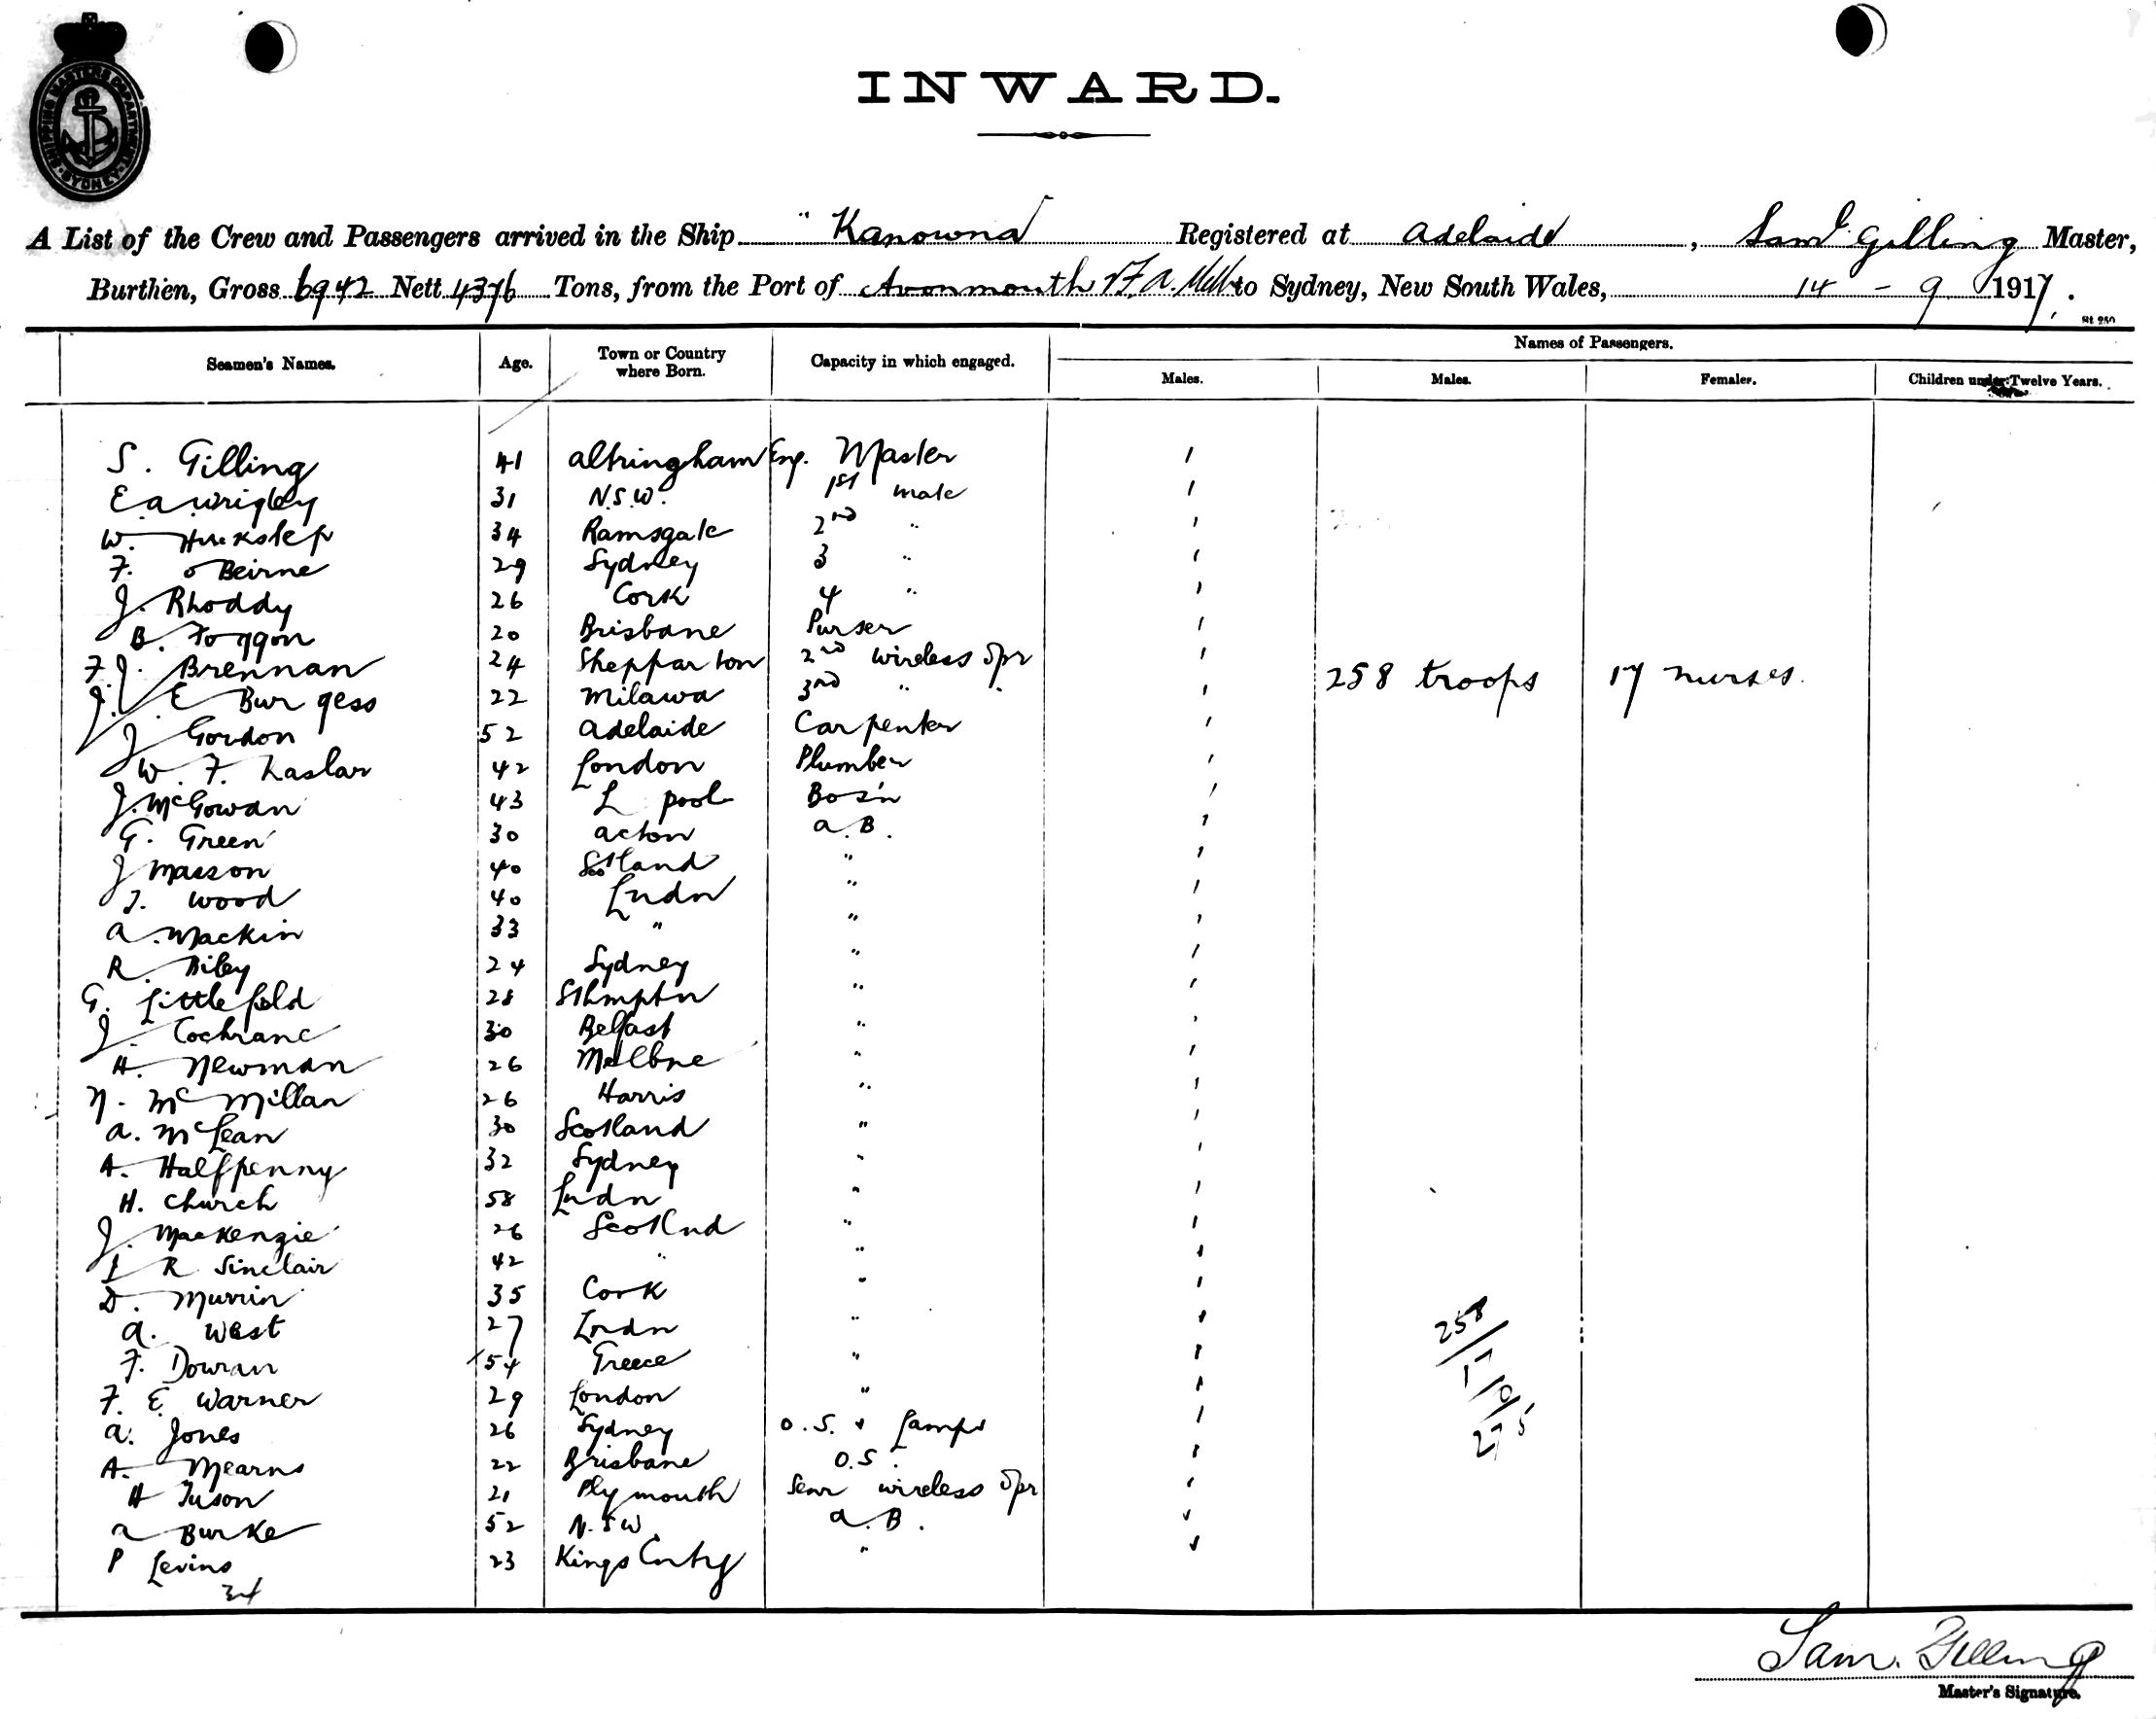 SHIPPING MASTER'S DEPARTMENT SYDNEY
INWARD.
A List of the Crew and Passengers arrived in the Ship "Kanowna Registered at Adelaide, Saml Gilling Master,
Burthen, Gross 6942 Nett 4376 Tons, from the Port of Avonmouth to Sydney, New South Wales, 14 - 9 1917.
Names of Passengers.
Seamen's Names. Age. Town or Country where Born. Capacity in which engaged. Males. Males. Females. Children under Twelve Years.
S. Gilling 41 Altringham Eng. Master
E.A. Wrigley 31 N.S.W. 1st mate
W. Huckstep 34 Ramsgate 2nd "
F. O Beirne 29 Sydney 3 "
J. Rhoddy 26 Cork 4 "
B. Foggon 20 Brisbane Purser
F.J. Brennan 24 Shepparton 2nd wireless Opr 258 troops 17 nurses.
J. E Burgess 22 Milawa 3rd " .
J Gordon 52 Adelaide Carpenter
W. F. Haslar 42 London Plumber
J. McGowan 43 L pool Bosn
G. Green 30 Acton A.B.
J Masson 40 Scotland "
J. Wood 40 Lndn "
A. Mackin 33 " "
R. Riley 24 Sydney "
G. Littlefield 28 Sthmptn "
J. Cochrane 30 Belfast "
H. Newman 26 Melbne "
N. McMillan 26 Harris "
A. McLean 30 Scotland "
A. Halfpenny 32 Sydney "
H. Church 58 Lndn "
J. MacKenzie 26 Scotlnd "
R Sinclair 42 " "
D. Murrin 35 Cork "
A. West 27 Lndn "
F. Dowran 54 Greece "
F. E. Warner 29 London "
A. Jones 26 Sydney O.S. & Lamps
A. Mearns 22 Brisbane O.S.
H Tuson 21 Plymouth Senr wireless Opr
A Burke 52 N.S.W. A.B.
P Levins 23 Kings Cnty "
34
258
17
275
Sam. Gilling
Master's Signature.